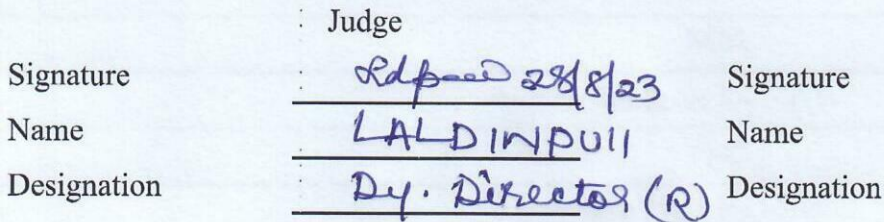 Judge
Signature 28/8/23 Signature
Name LALDINPUII Name
Designation Dy. Director (R) Designation